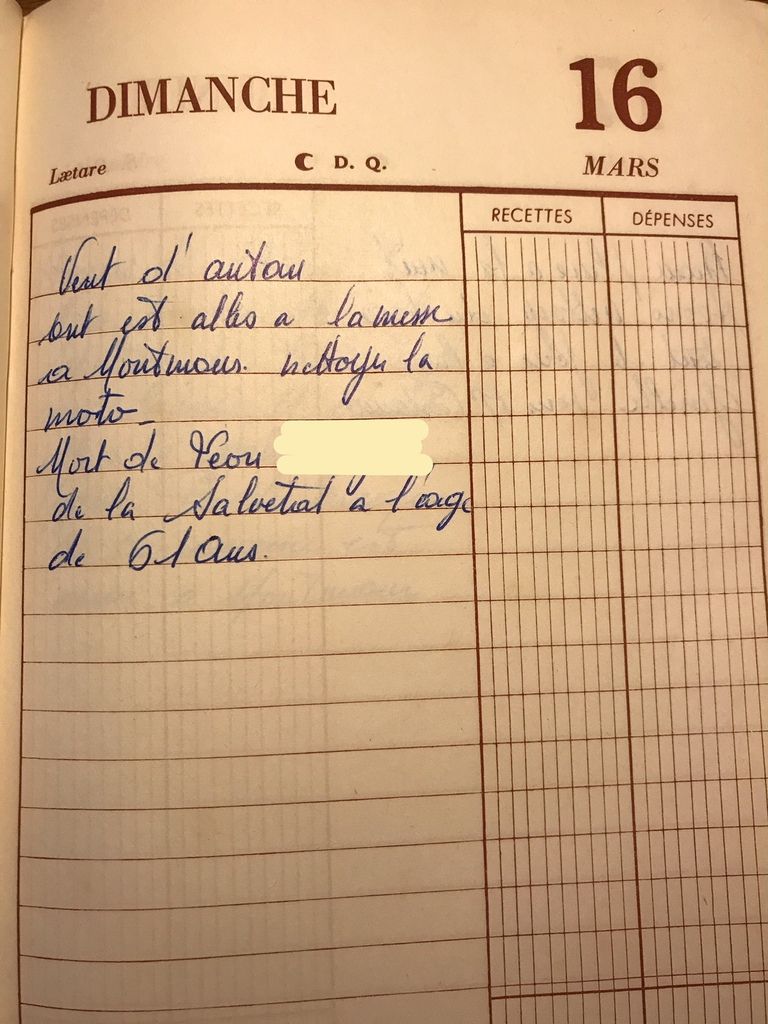 DIMANCHE 16
Lætare ☾ D. Q. MARS
RECETTES DÉPENSES
Vent d'autan
ont est allés a la messe
a Montmaur. nettoyer la
moto_
Mort de Léon
de la Salvetat a l'age
de 61 Ans.